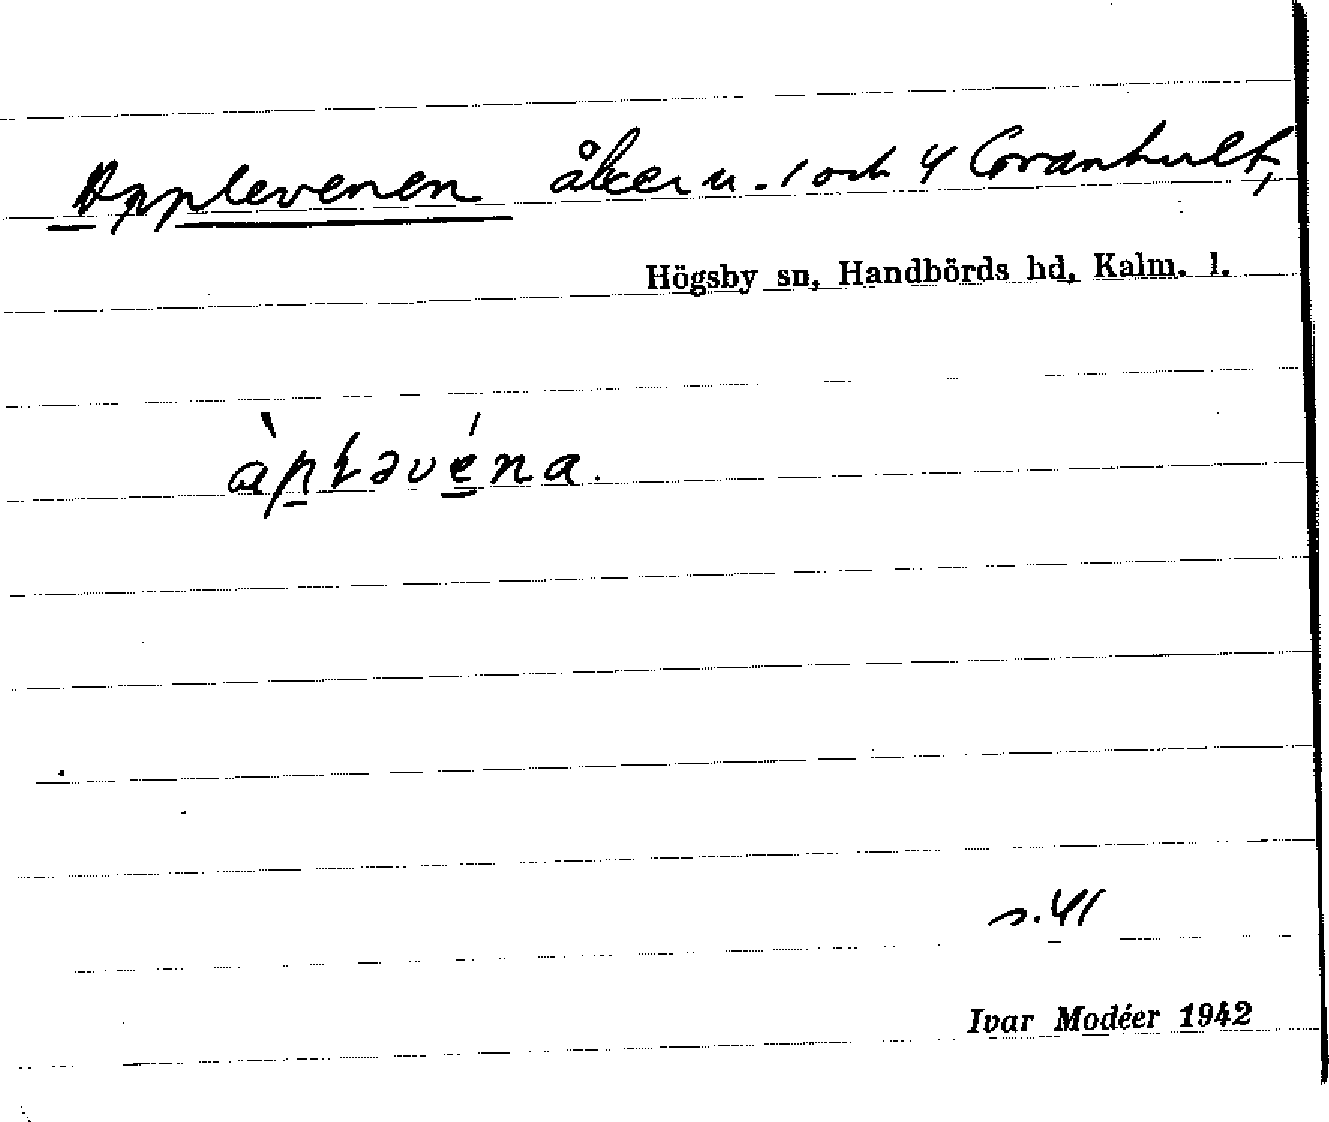 Applevenen åker u. 1 och 4 Granhult,
Högsby sn, Handbörds hd, Kalm. l.
s. 41
Ivar Modéer 1942